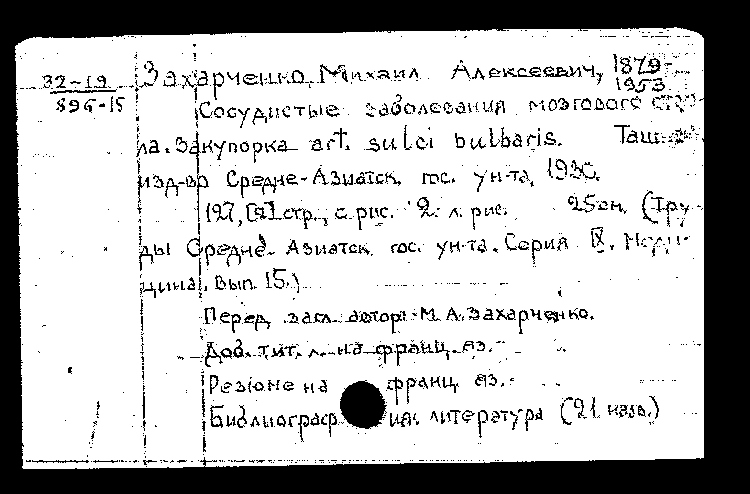 32-19
896-15
Захарченко, Михаил Алексеевич, 1879-1953
Сосудистые заболевания мозгового ство-
ла. Закупорка art. sulci bulbaris. Ташкент,
изд-во Средне-Азиатск. гос. ун-та, 1930.
127, стр., с рис. 2 л. рис. 25 см. (Тру-
ды Средне-Азиатск. гос. ун-та. Серия IX, Меди-
цина, вып. 15.)
Перед загл. автор: М.А. Захарченко.
Доб. тит. л. на франц. яз.-
Резюме на франц. яз.-
Библиограф ия: литература (21 назв.)